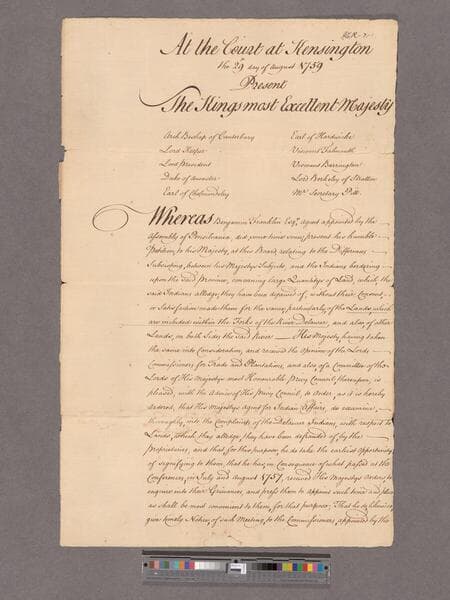 At the Court at Kensington
the 29 day of August 1759
Present
The Kings most Excellent Majesty
Arch Bishop of Canterbury
Earl of Hardwicke
Lord Keeper
Viscount Falmouth
Lord President
Viscount Barrington
Duke of Ancaster
Lord Berkeley of Stratton
Earl of Cholmondeley
Mr Secretary Pitt
Whereas Benjamin Franklin Esqr Agent appointed by the
Assembly of Pensilvania, did some time since, present his humble
Petition, to his Majesty, at this Board, relating to the Differences
Subsisting, between his Majestys Subjects, and the Indians bordering
upon the said Province, concerning large Quantitys of Land, which, the
said Indians alledge, they have been deprived of, without their Consent,
or Satisfaction made them for the same, particularly, of the Lands, which
are included within the Forks of the River Delawar, and also, of other
Lands, on both Sides, the said River His Majesty, having taken
the same into Consideration, and received the Opinion, of the Lords
Commissioners, for Trade and Plantations, and also, of a Committee of the
Lords of His Majestys most Honourable Privy Council, thereupon, is
pleased, with the Advice of His Privy Council, to Order, as it is hereby
Ordered, that His Majestys Agent for Indian Affairs, do examine,
thoroughly, into the Complaints, of the Delawar Indians, with respect to
Lands, which, they alledge, they have been defrauded of, by the
Proprietaries, and that for this purpose, he do take the earliest Opportunity
of signifying to them, that he has, in Consequence of what passed at the
Conferences, in July and August 1757, received His Majestys Orders, to
enquire into their Grievances, and press them to appoint such time and place
as shall be most convenient to them, for that purpose. That he do likewise
give timely Notice, of such Meeting, to the Commissioners, appointed by the